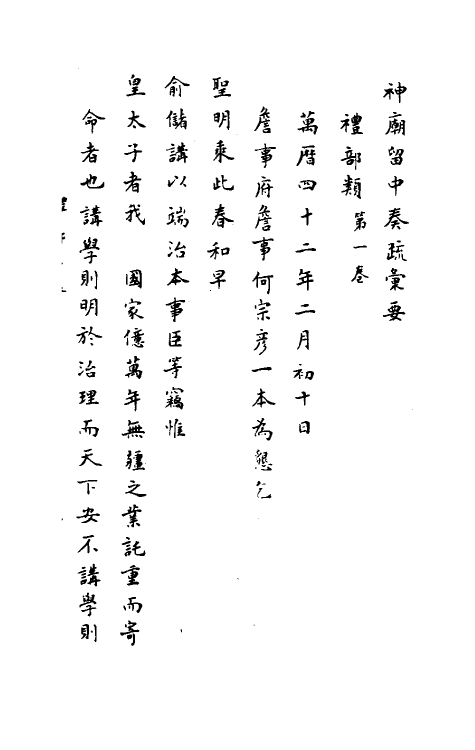 神廟留中奏疏彙要
禮部類第一卷
萬曆四十二年二月初十日
詹事府詹事何宗彥一本為懇乞
聖明乘此春和早
俞儲講以端治本事臣等竊惟
皇太子者我 國家億萬年無疆之業託重而寄
命者也講學則明於治理而天下安不講學則